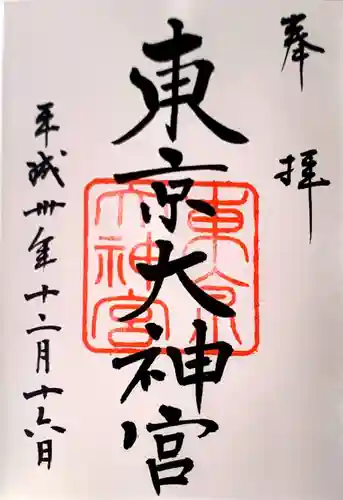 奉拝
東京大神宮
平成卅年十二月十六日
東京大神宮